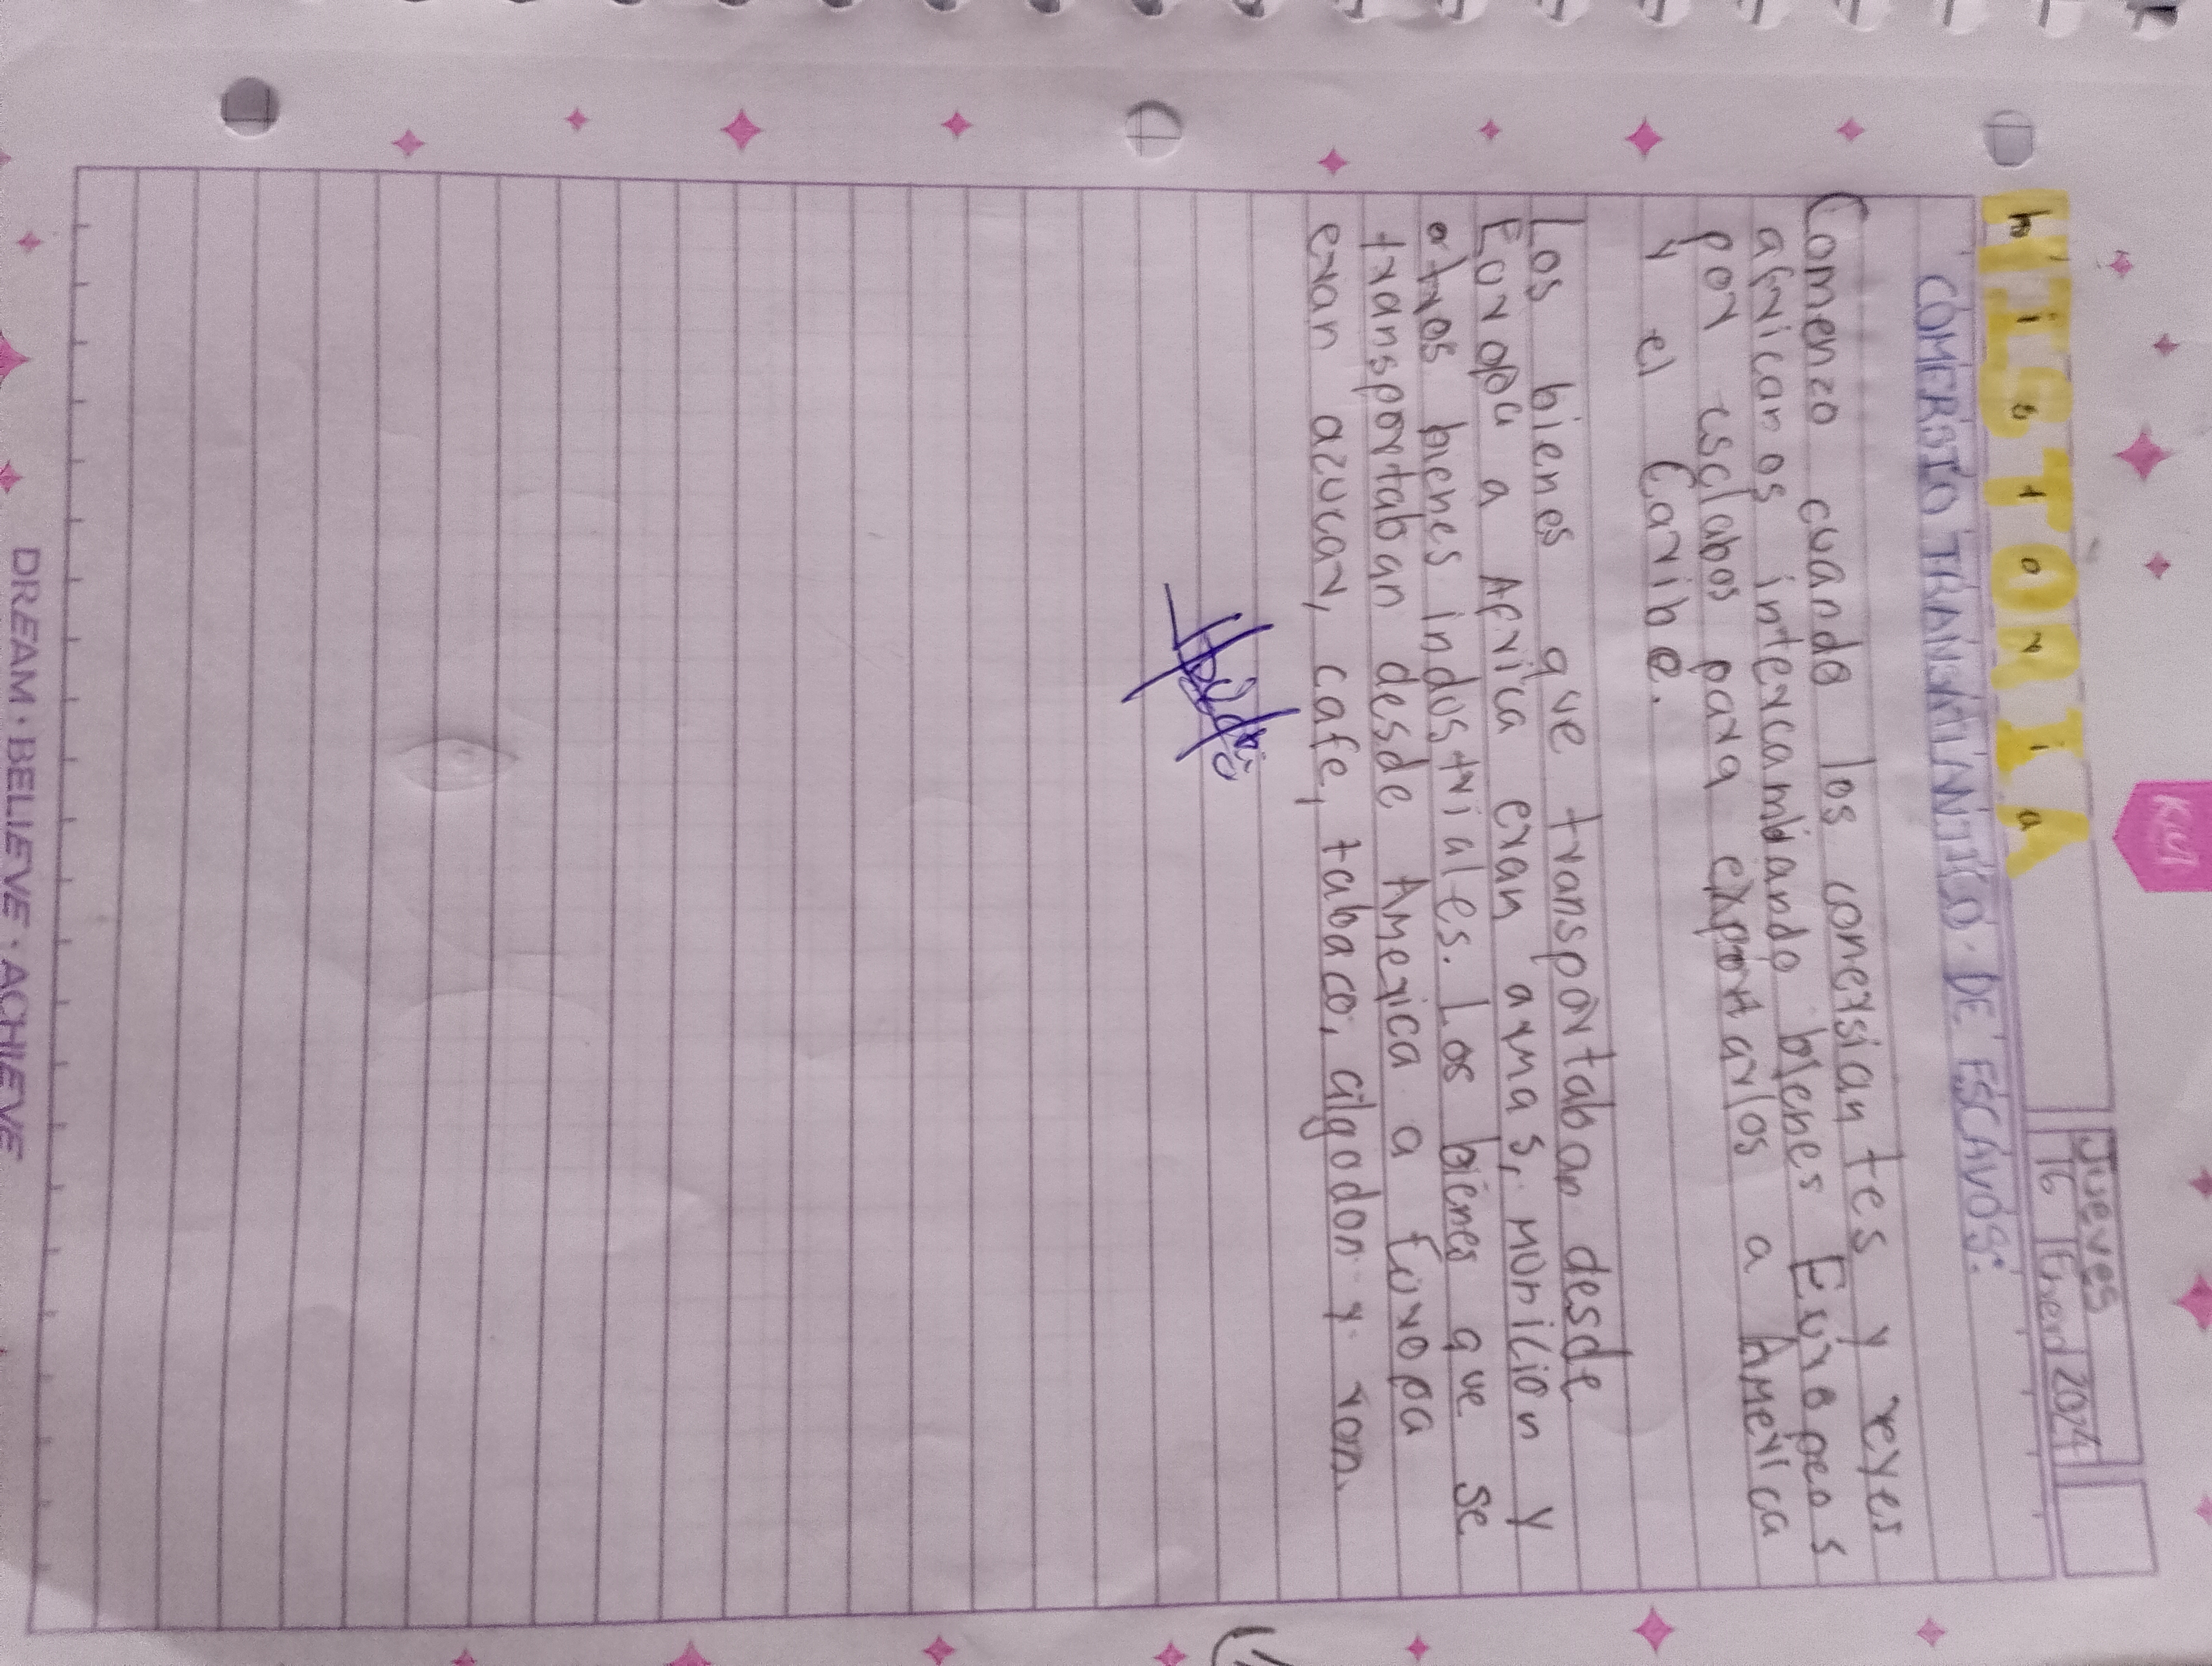 Jueves
16 Enero 2024
hisToriA
COMERSIO TRANSATLANTICO DE ESCAVOS:
Comenzo cuando los comersiantes y reyes
africanos intercambiando bienes Europeos
por esclabos para exportarlos a America
y el Caribe.
Los bienes que transportaban desde
Europa a Africa eran armas, municion y
otros bienes industriales. Los bienes que se
transportaban desde America a Europa
eran azucar, cafe, tabaco, algodon y ron.
DREAM · BELIEVE · ACHIEVE